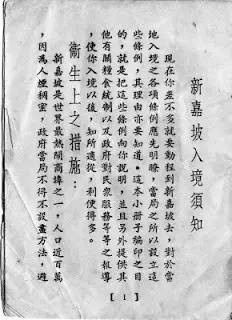 新嘉坡入境須知
現在你差不多就要動程到新嘉坡去，對於當
地入境之各項條例應先明瞭，當局之所以設立這
些條例，其理由亦要知道。這本小册子編印之目
的，就是把這些條例向你說明，並且另外提供其
他有關糧食統制以及政府對民衆服務等等之報導
，使你入境以後，知所適從，利便得多。
衛生上之措施：
新嘉坡是世界最熱鬧商埠之一，人口近百萬
，因為人煙稠密，政府當局不得不設盡方法，避
【1】